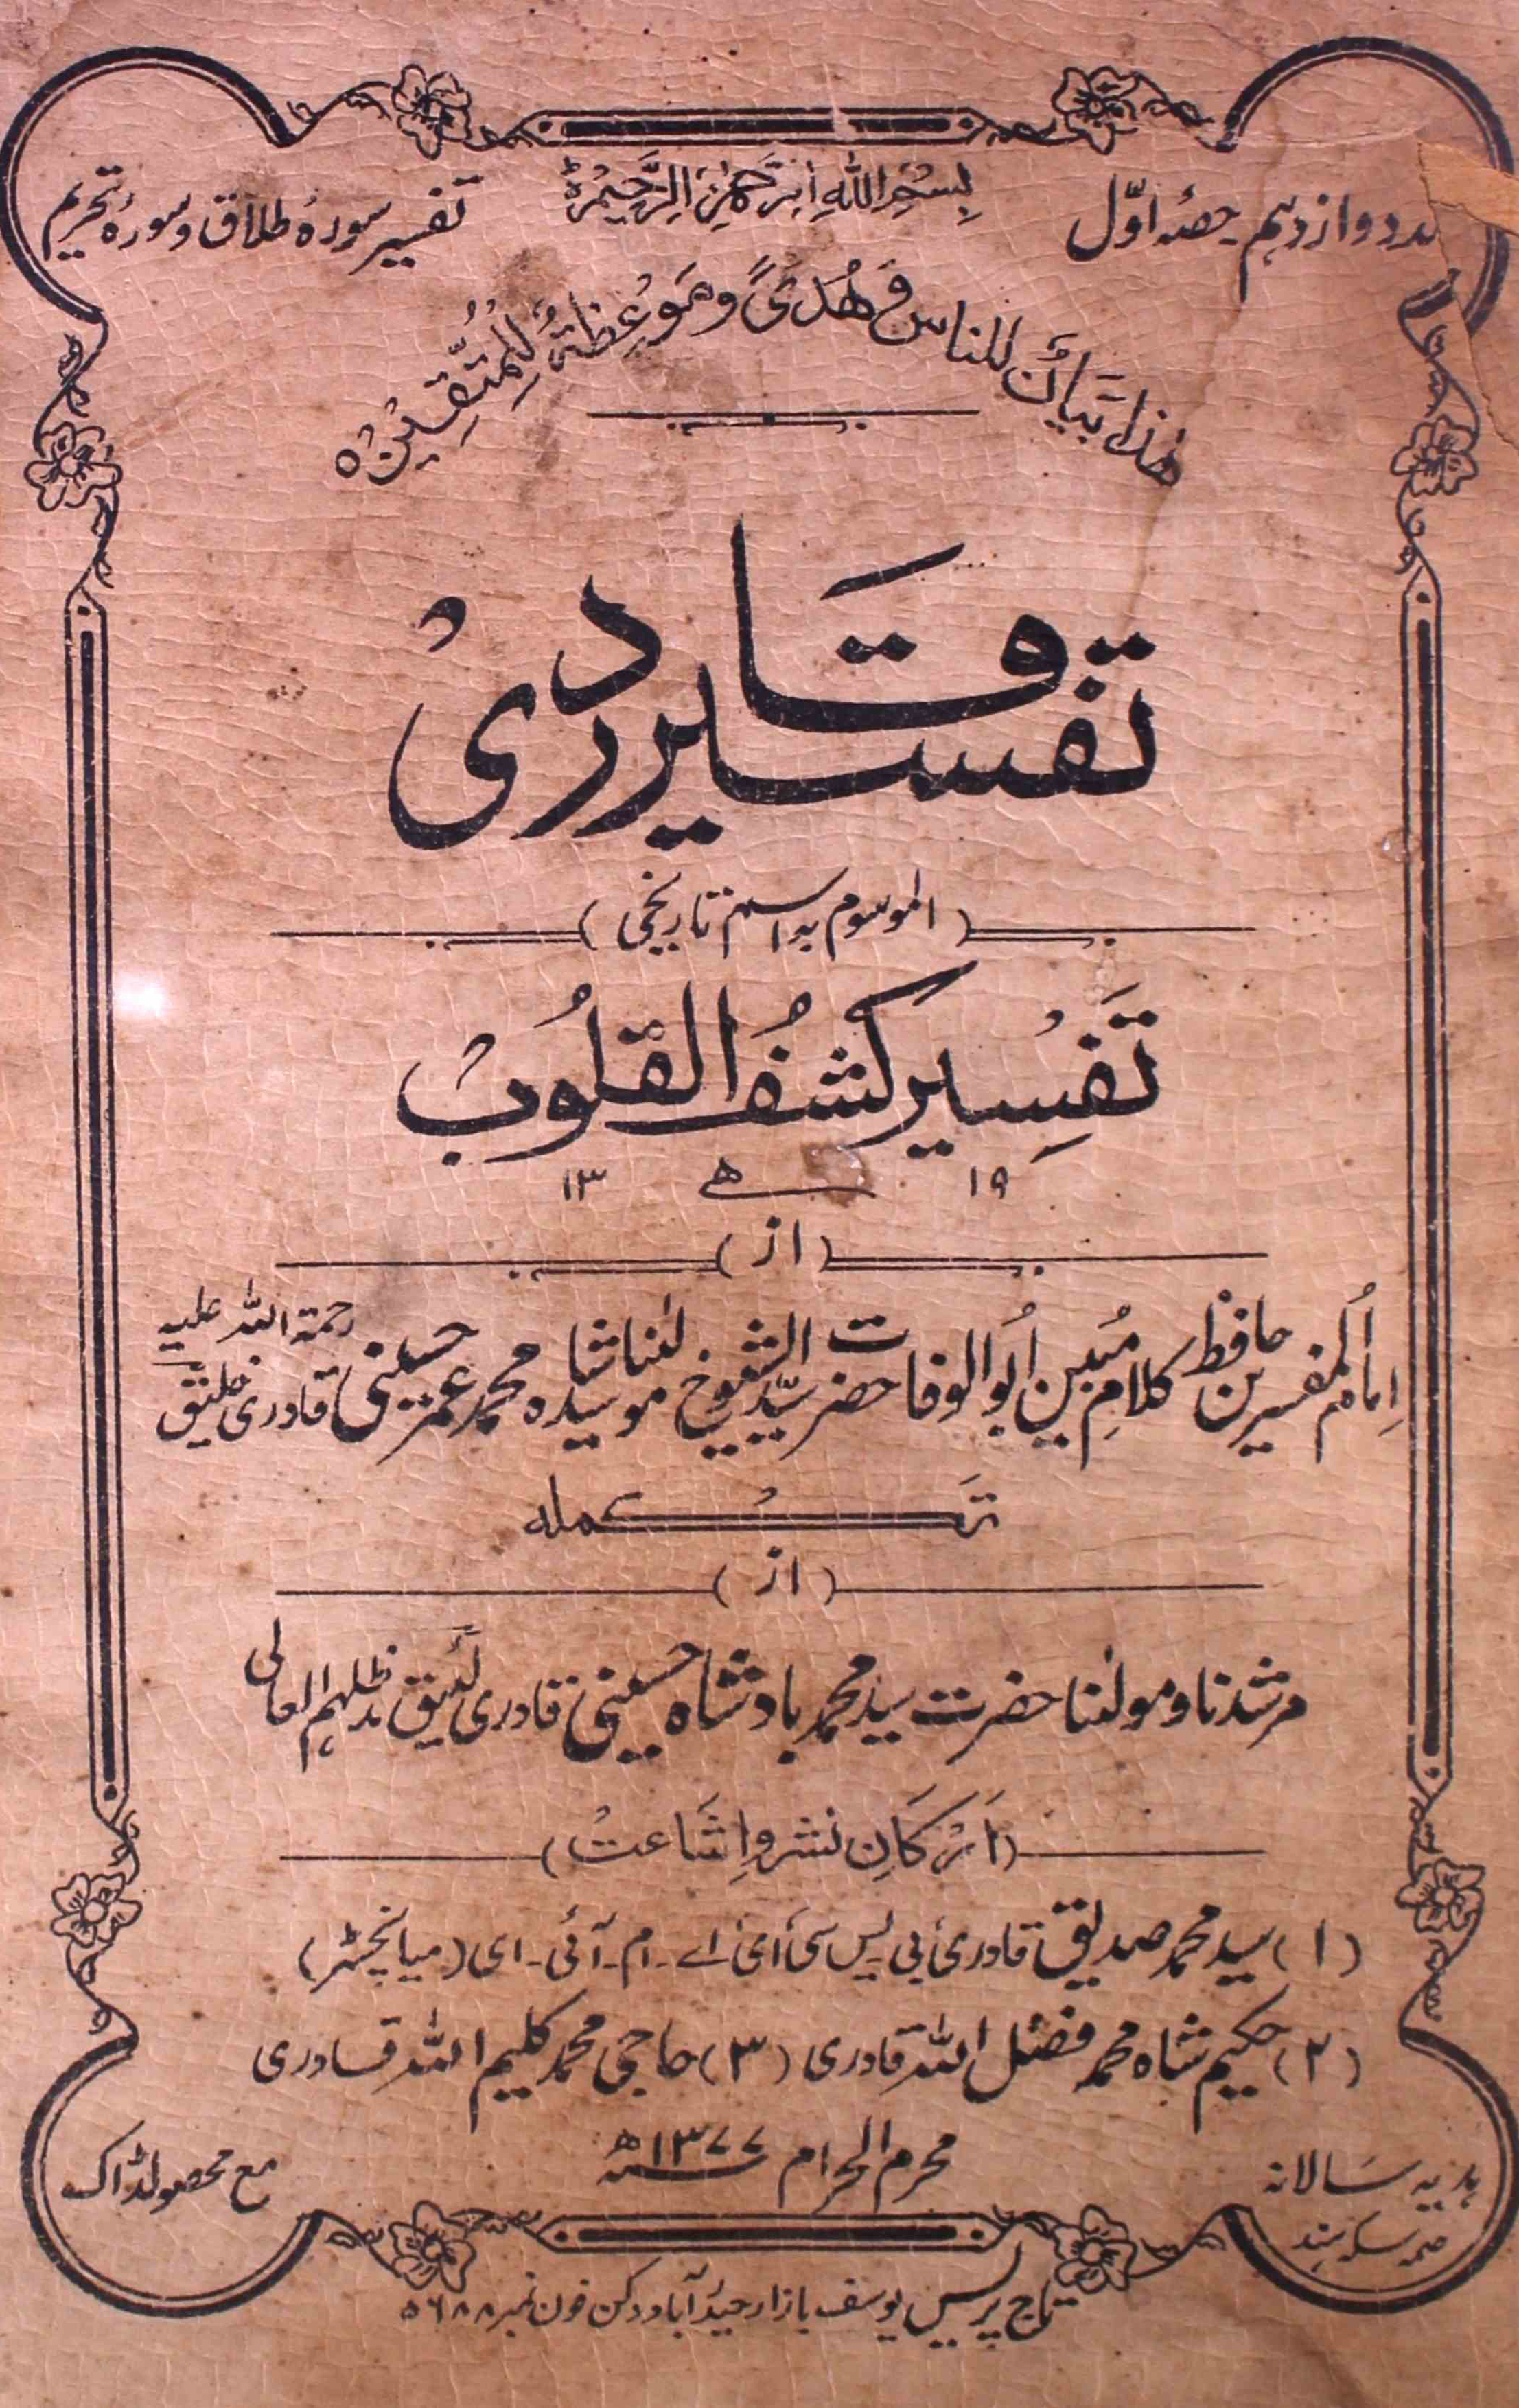 دوازدہم حصۂ اوّل
بِسْمِ اللّٰهِ الرَّحْمٰنِ الرَّحِيْمِ
تفسیر سورہ طلاق و سورہ تحریم
هٰذَا بَيَانٌ لِلناسِ وَ هُدًى وَ مَوْعِظَةٌ لِلْمُتَّقِيْنَ ہ
تفسیر قادری
(الموسوم بہ اسم تاریخی)
تَفسِیر کشفُ القلُوبْ
۱۹ ھ ۱۳
(از)
اِمامُ المفسرین حافظ کلامِ مُبین اَبُو الوفا حضرت سیّد الشیوخ مولٰنا سیدشاہ محمد عمر حسینی قادری خلیق رحمۃ اللہ علیہ
تَکْملہ
(از)
مرشدنا و مولٰنا حضرت سید محمد بادشاہ حسینی قادری لئیق مدظلہم العالی
(اَرْکَانِ نشر و اِشَاعت)
(۱) سید محمد صدیق قادری بی یس سی ای اے۔ ام۔ آئی۔ ای (میانچسٹر)
(۲) حکیم شاہ محمد فضل اللہ قادری (۳) حاجی محمد کلیم اللہ قادری
محرم الحرام ۱۳۷۷ھ
ہدیہ سالانہ
سکہ ہند
مع محصولڈاک
تاج پریس یوسف بازار حیدرآباد دکن فون نمبر ۵۶۸۸